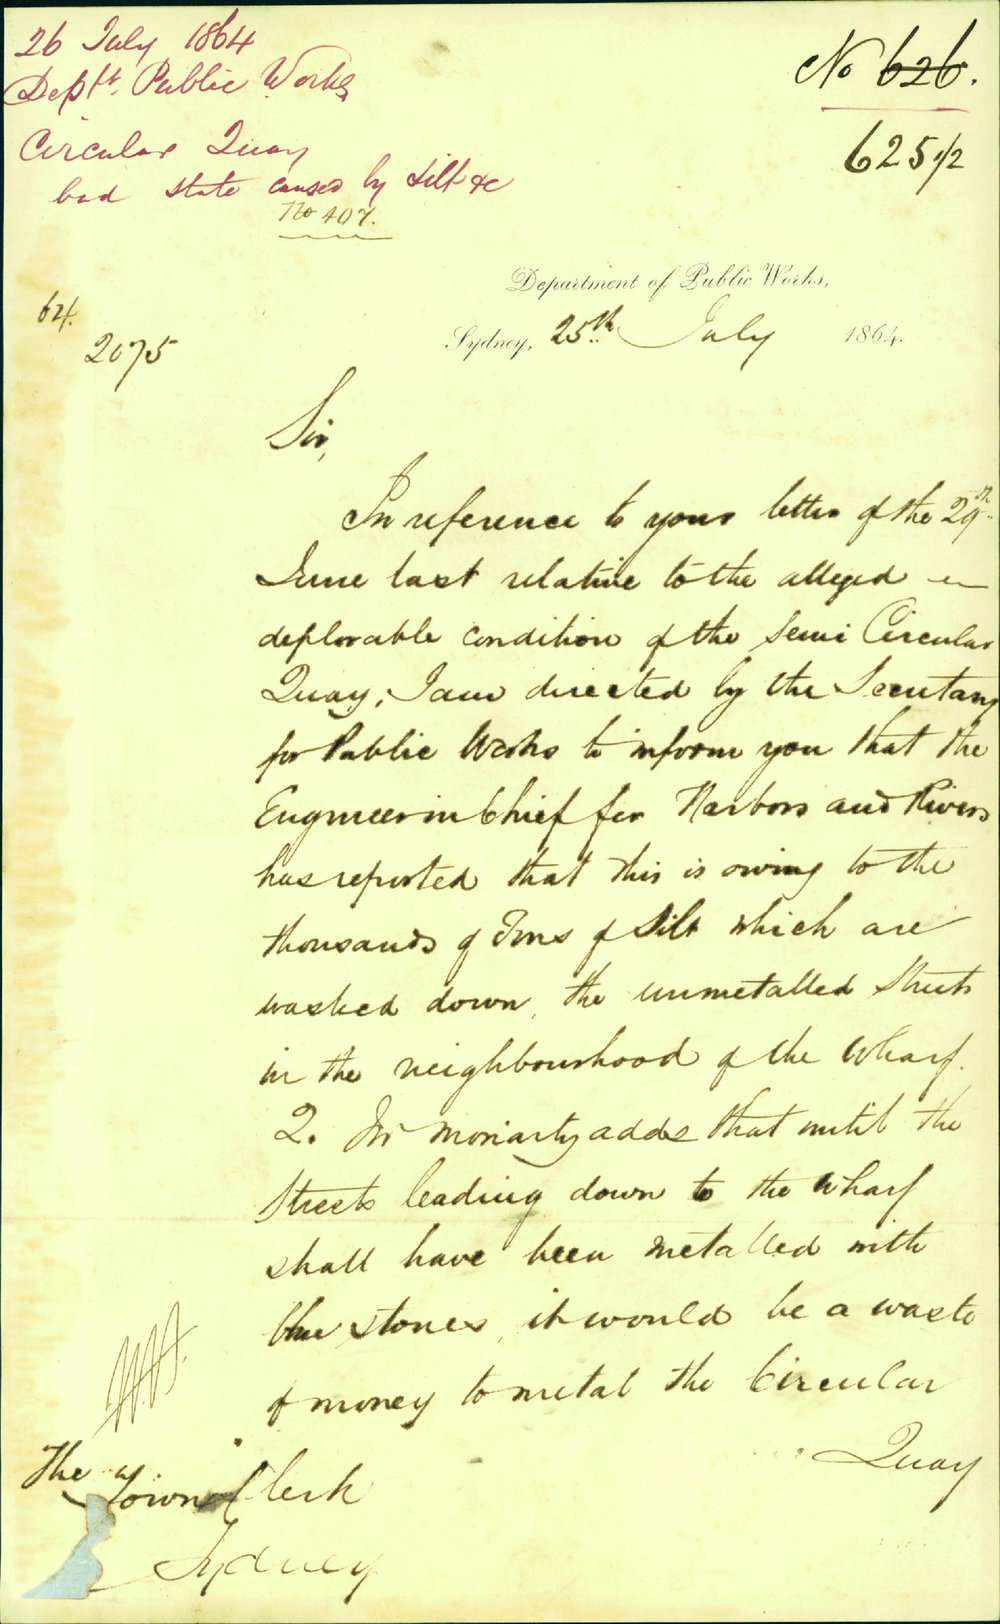 26 July 1864
Deptt. Public Works
Circular Quay
bad state caused by silt &c
No 407.
No 626.
625 1/2
Department of Public Works,
Sydney, 25th July 1864.
64.
2075
Sir,
In reference to your letter of the 29th
June last relative to the alleged
deplorable condition of the Semi Circular
Quay; I am directed by the Secretary
for Public Works to inform you that the
Engineer in Chief for Harbors and Rivers
has reported that this is owing to the
thousands of Tons of Silt which are
washed down, the unmetalled Streets
in the neighbourhood of the Wharf.
2. Mr Moriarty adds that until the
Streets leading down to the Wharf
shall have been metalled with
blue stones, it would be a waste
of money to metal the Circular
Quay
The
Town Clerk
Sydney